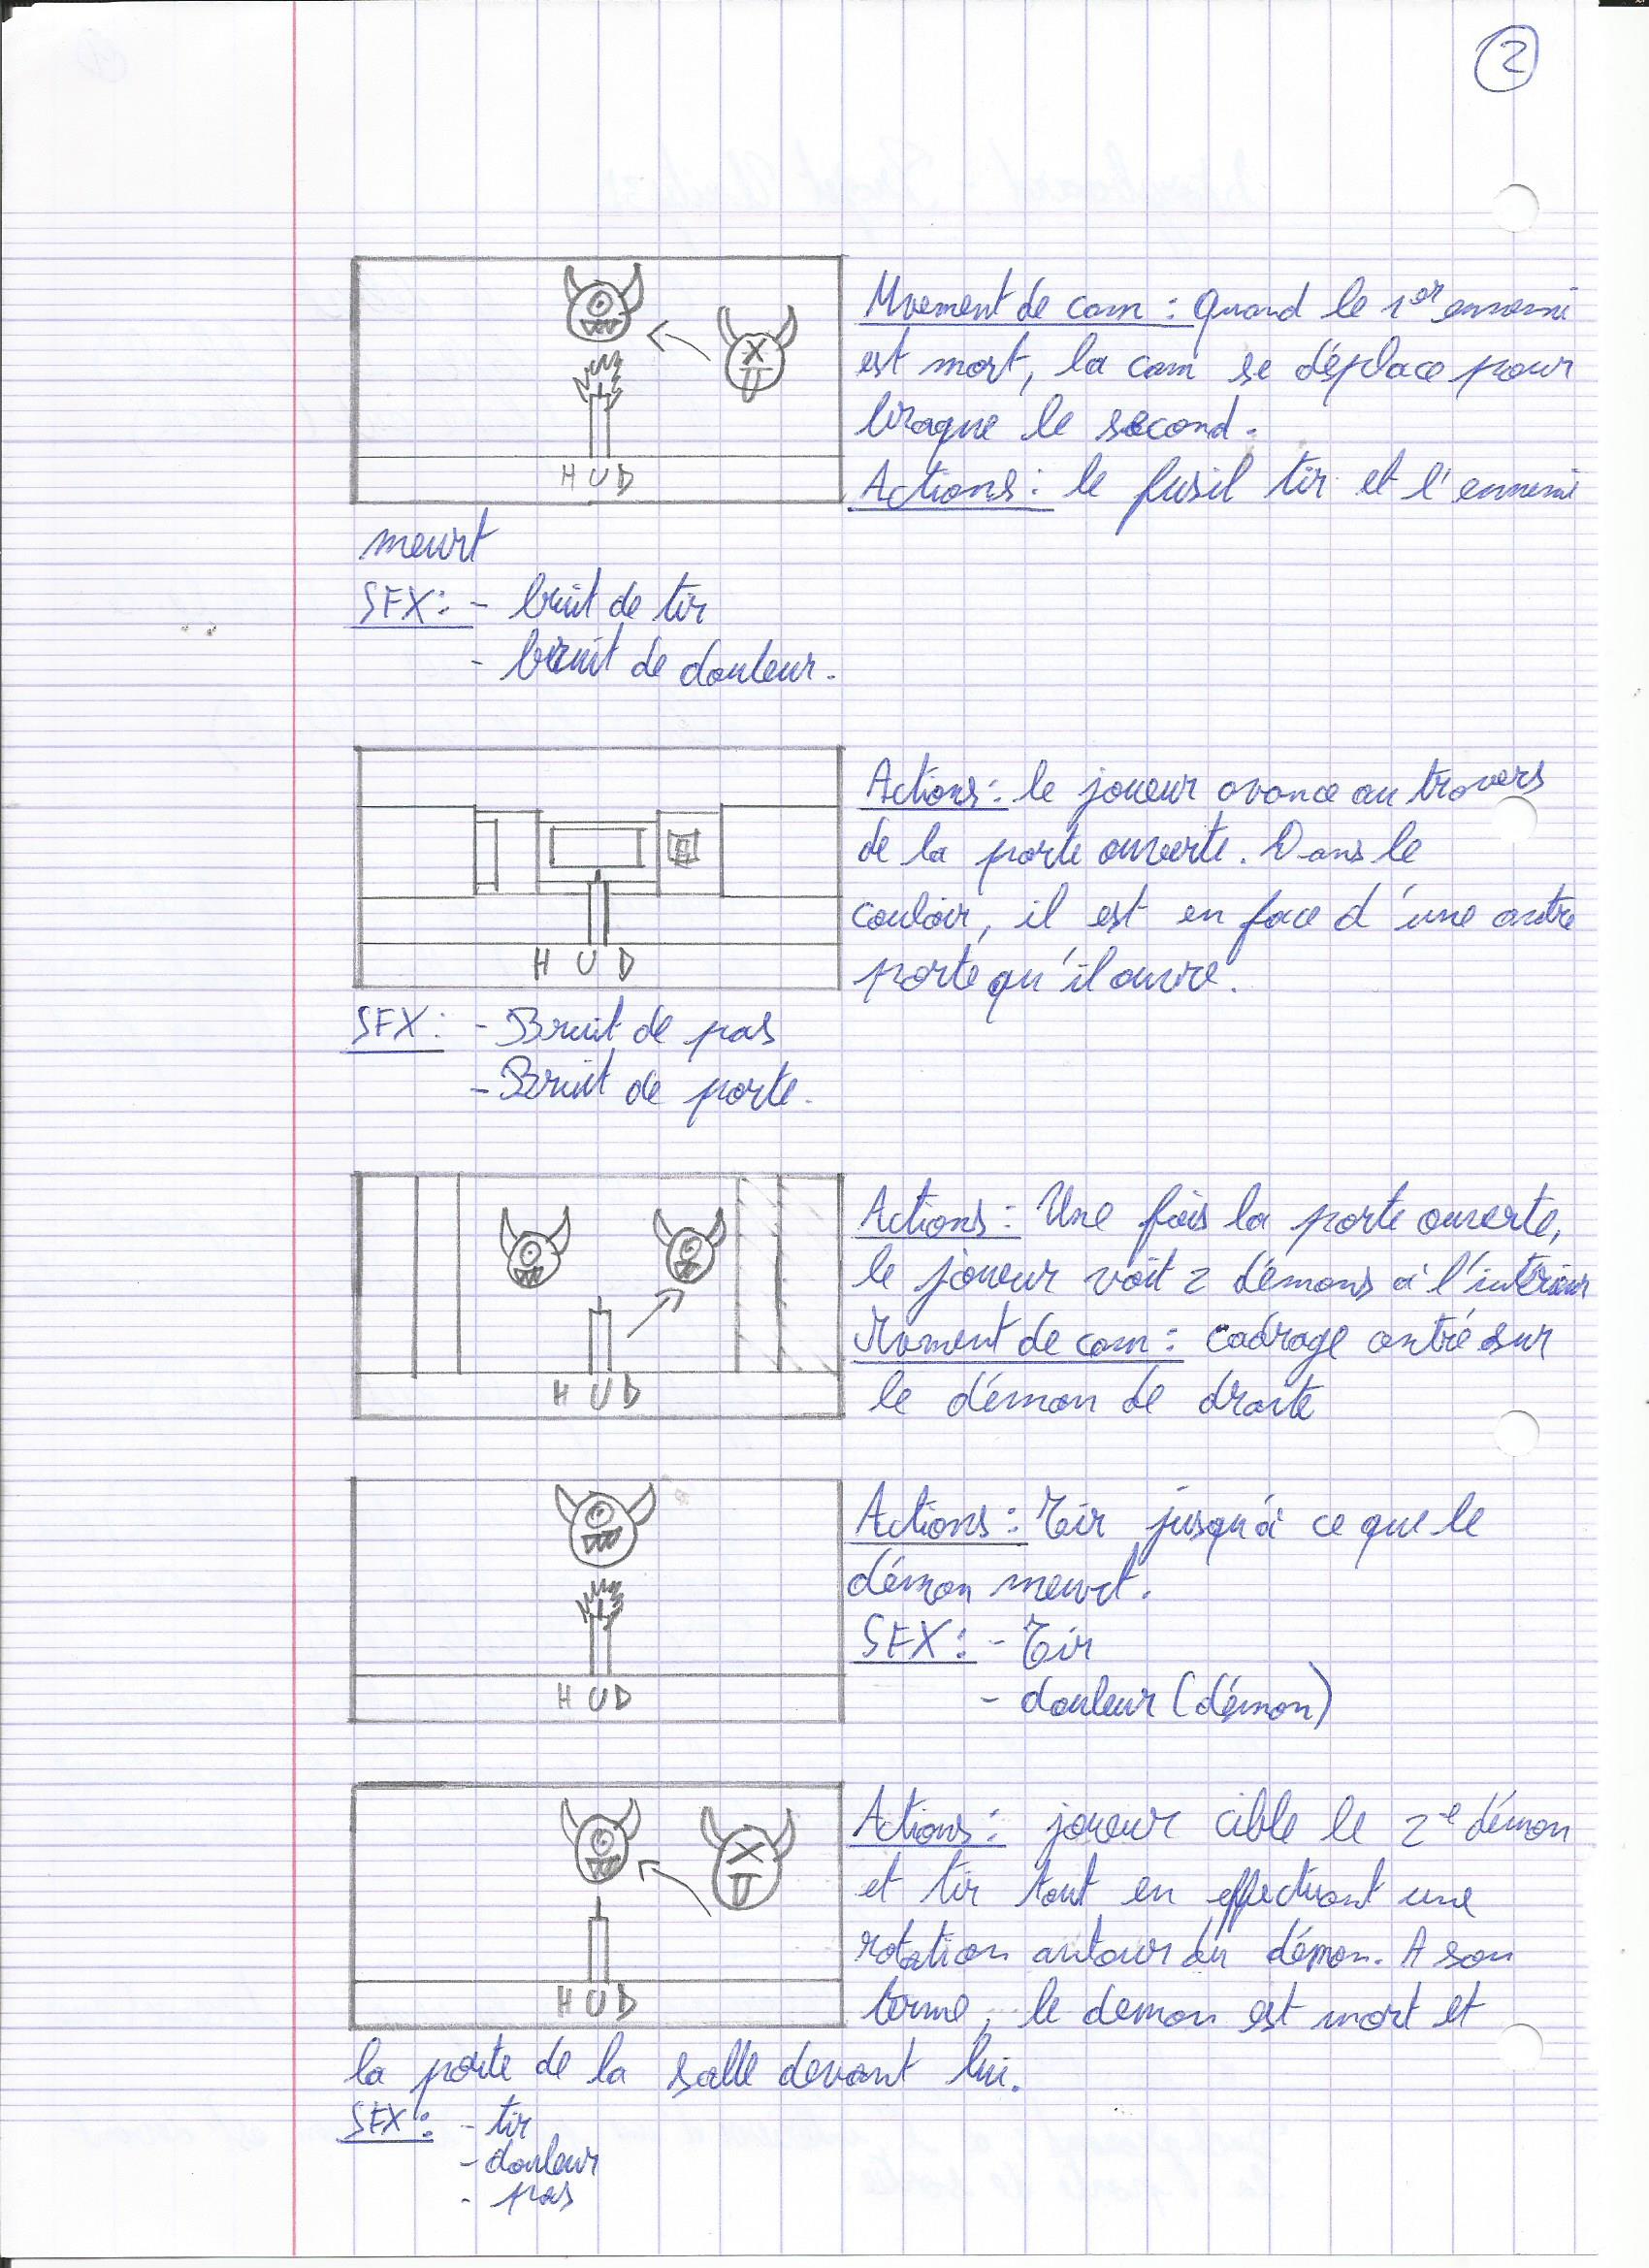 2
Mvement de cam : Quand le 1er ennemi
est mort, la cam se déplace pour
braque le second.
Actions : le fusil tir et l'ennemi
HUD
meurt
SFX : - bruit de tir
- bruit de douleur.
Actions : le joueur avance au travers
de la porte ouverte. Dans le
couloir, il est en face d'une autre
porte qu'il ouvre.
HUD
SFX : - Bruit de pas
- Bruit de porte.
Actions : Une fois la porte ouverte,
le joueur voit 2 démons à l'intérieur
de cam : cadrage centré sur
le démon de droite
HUD
Actions : Tir jusqu'à ce que le
démon meurt.
SFX : - Tir
- douleur (démon)
HUD
Actions : joueur cible le 2e démon
et tir tout en effectuant une
rotation autour du démon. A son
terme, le demon est mort et
HUD
la porte de la salle devant lui.
SFX : - tir
- douleur
- pas